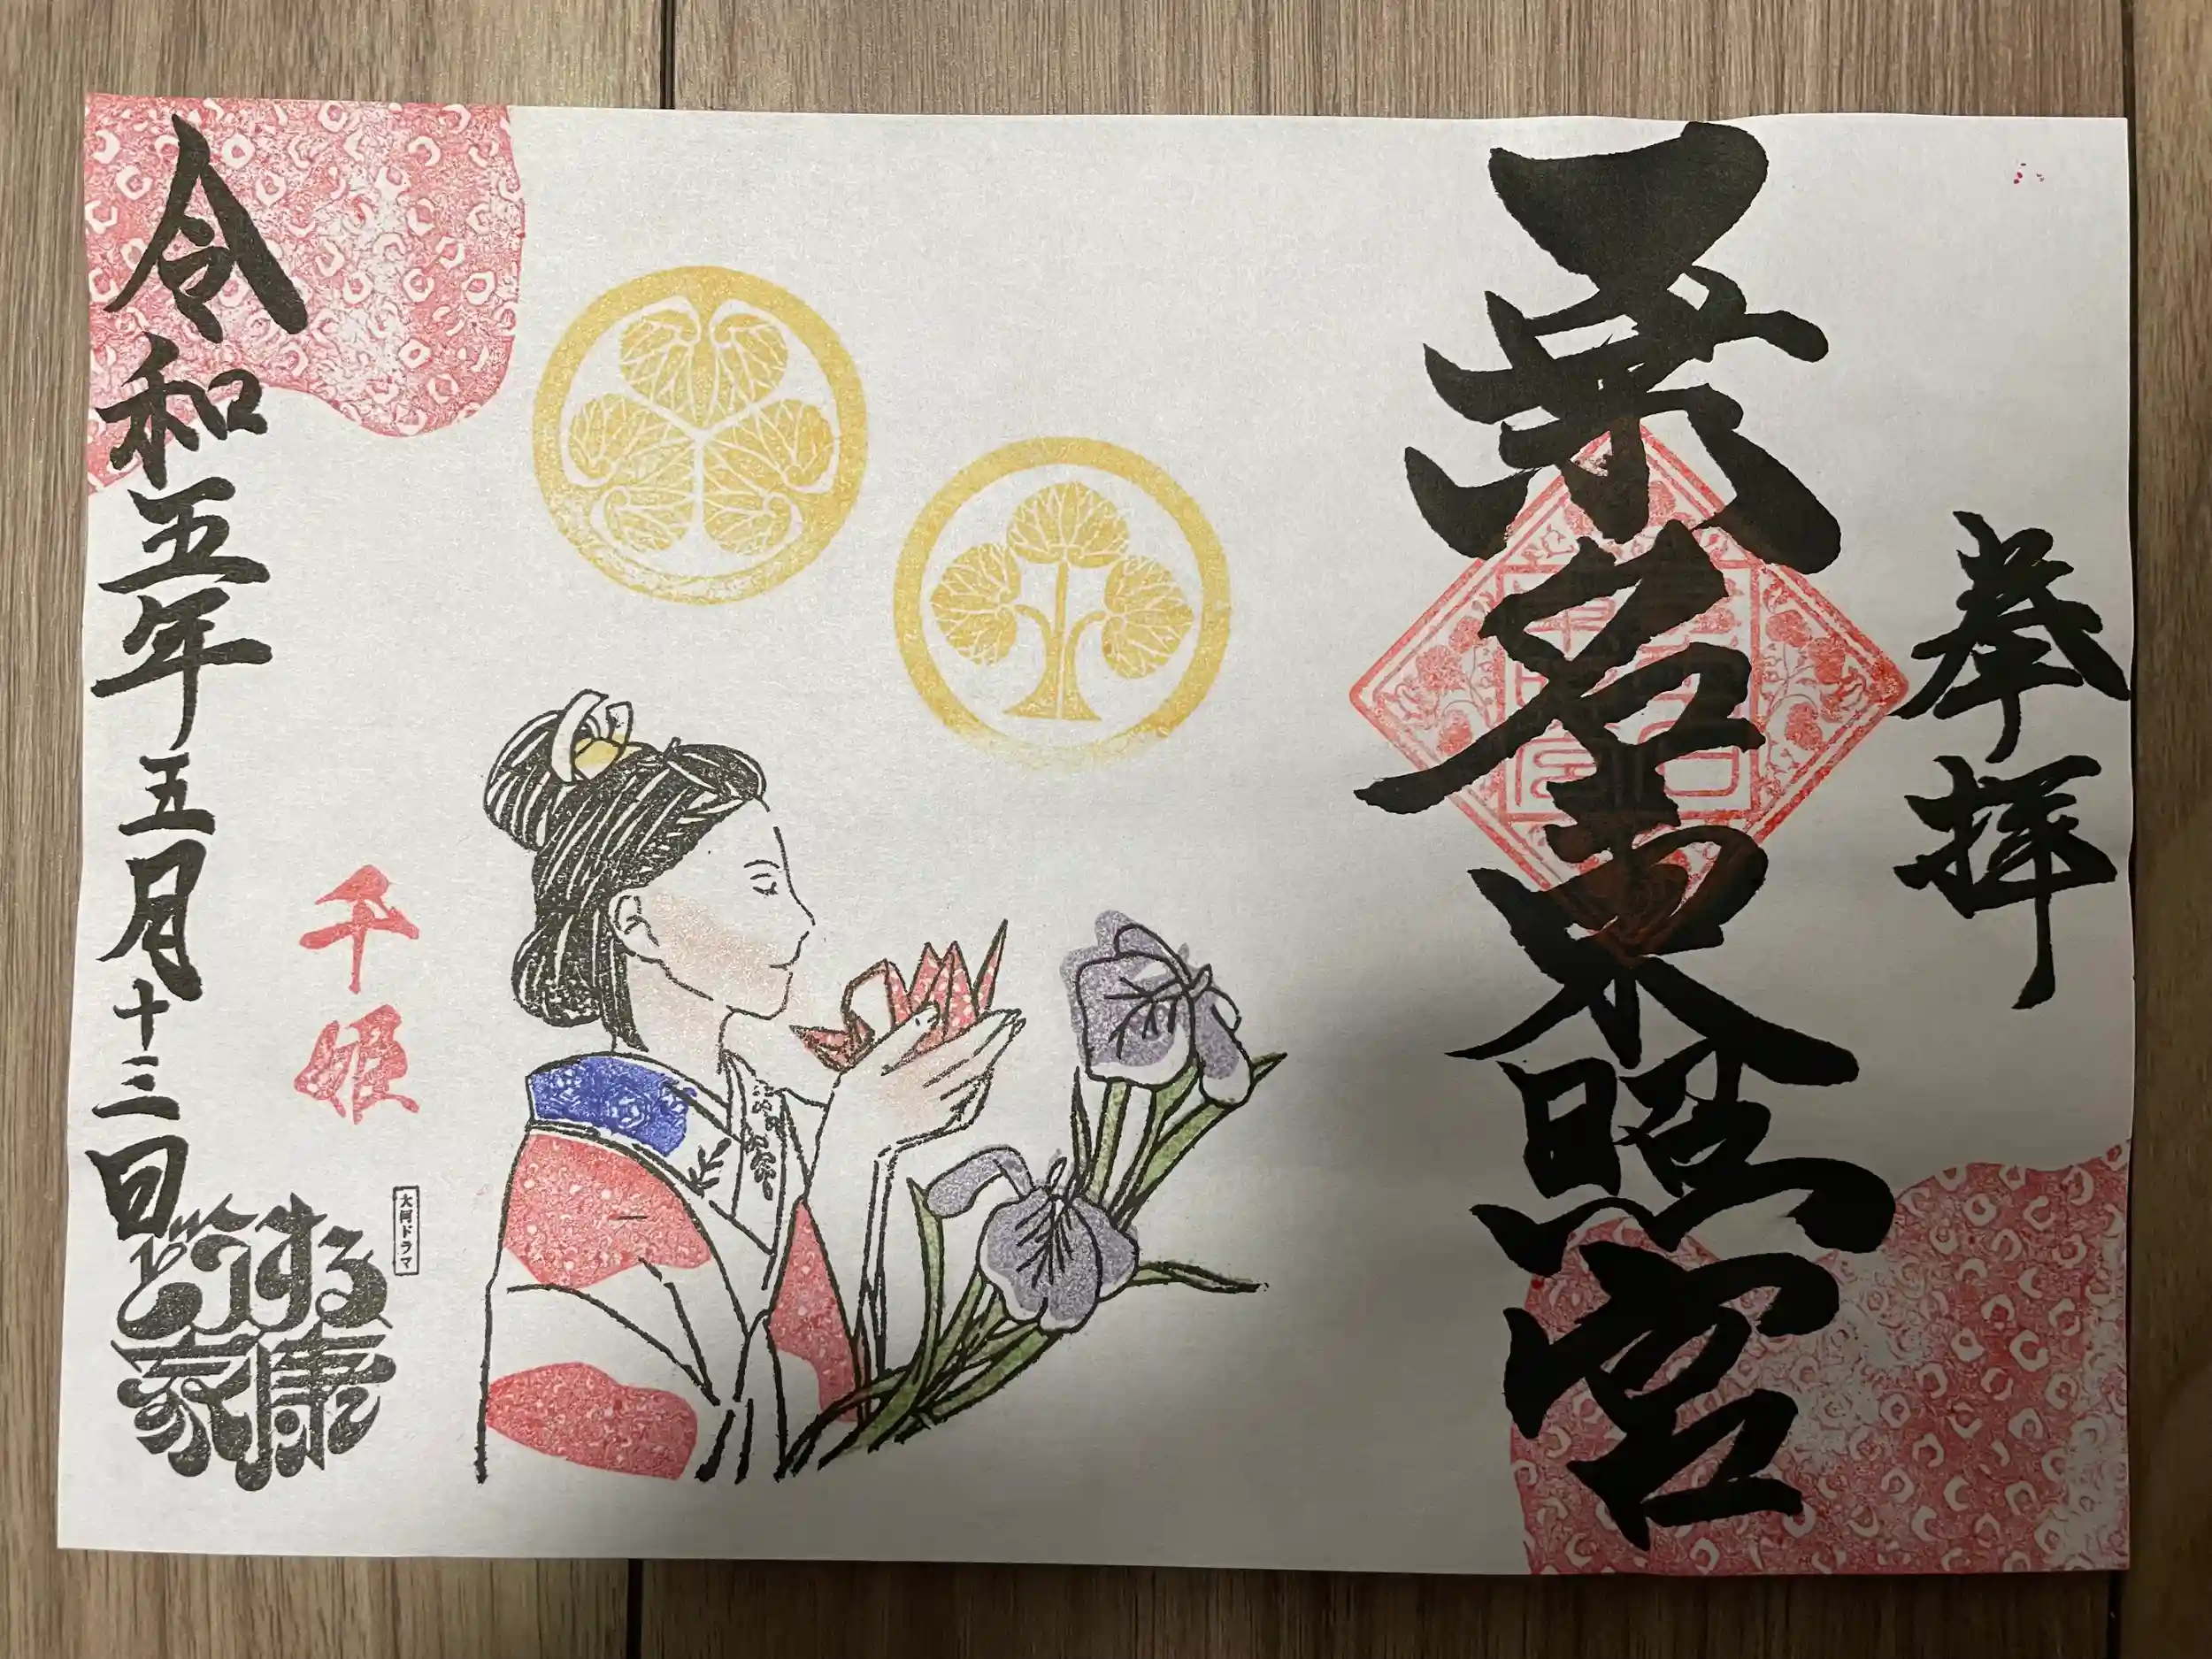 奉拝
桑名東照宮
大河ドラマ
どうする
家康
千姫
令和五年五月十三日